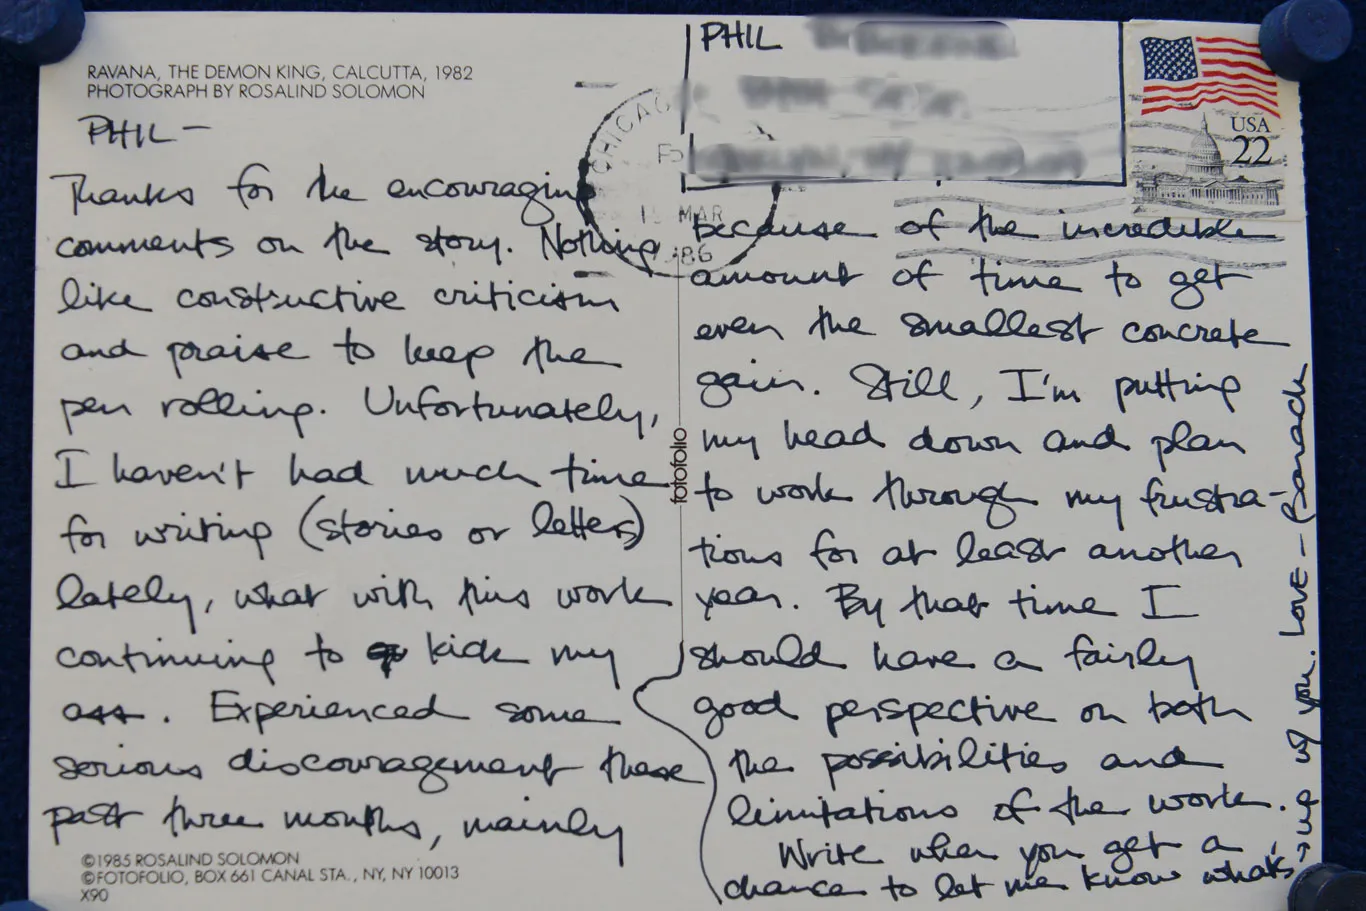 RAVANA, THE DEMON KING, CALCUTTA, 1982
PHOTOGRAPH BY ROSALIND SOLOMON
PHIL
CHICAGO
15 MAR
86
USA
22
PHIL —
Thanks for the encouraging
comments on the story. Nothing
like constructive criticism
and praise to keep the
pen rolling. Unfortunately,
I haven't had much time
for writing (stories or letters)
lately, what with this work
continuing to kick my
ass. Experienced some
serious discouragement these
past three months, mainly
because of the incredible
amount of time to get
even the smallest concrete
gain. Still, I'm putting
my head down and plan
to work through my frustra-
tions for at least another
year. By that time I
should have a fairly
good perspective on both
the possibilities and
limitations of the work.
Write when you get a
chance to let me know what's
→ up w/ you. Love — Barack
fotofolio
©1985 ROSALIND SOLOMON
©FOTOFOLIO, BOX 661 CANAL STA., NY, NY 10013
X90